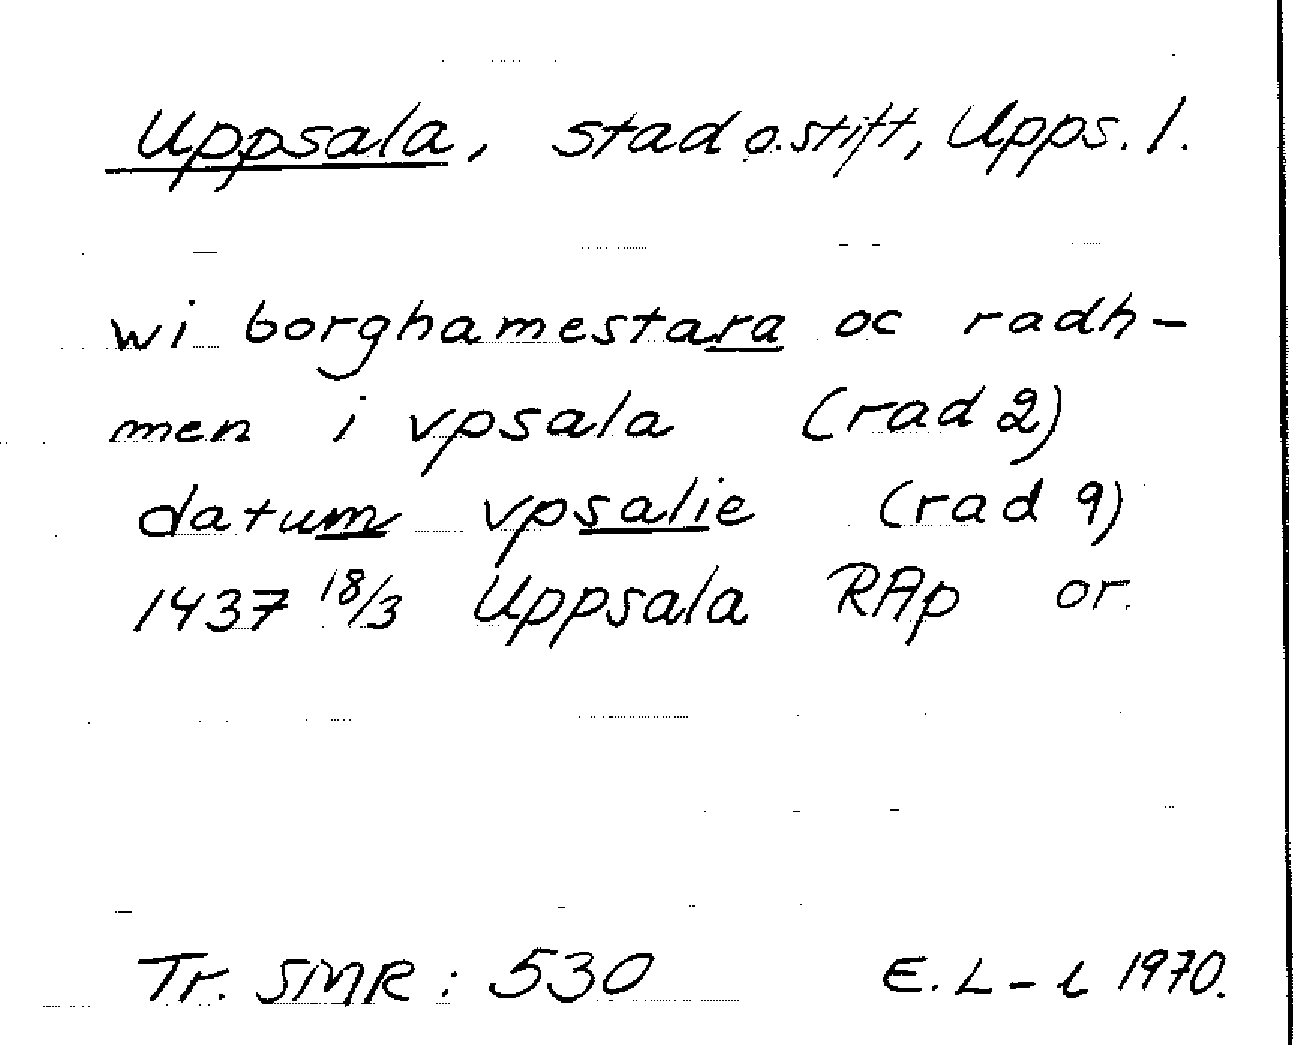 Uppsala, stad o. stift, Upps. l.
wi borghamestara oc radh-
men i vpsala (rad 2)
datum vpsalie (rad 9)
1437 18/3 Uppsala RAp or.
Tr. SMR: 530 E. L-l 1970.